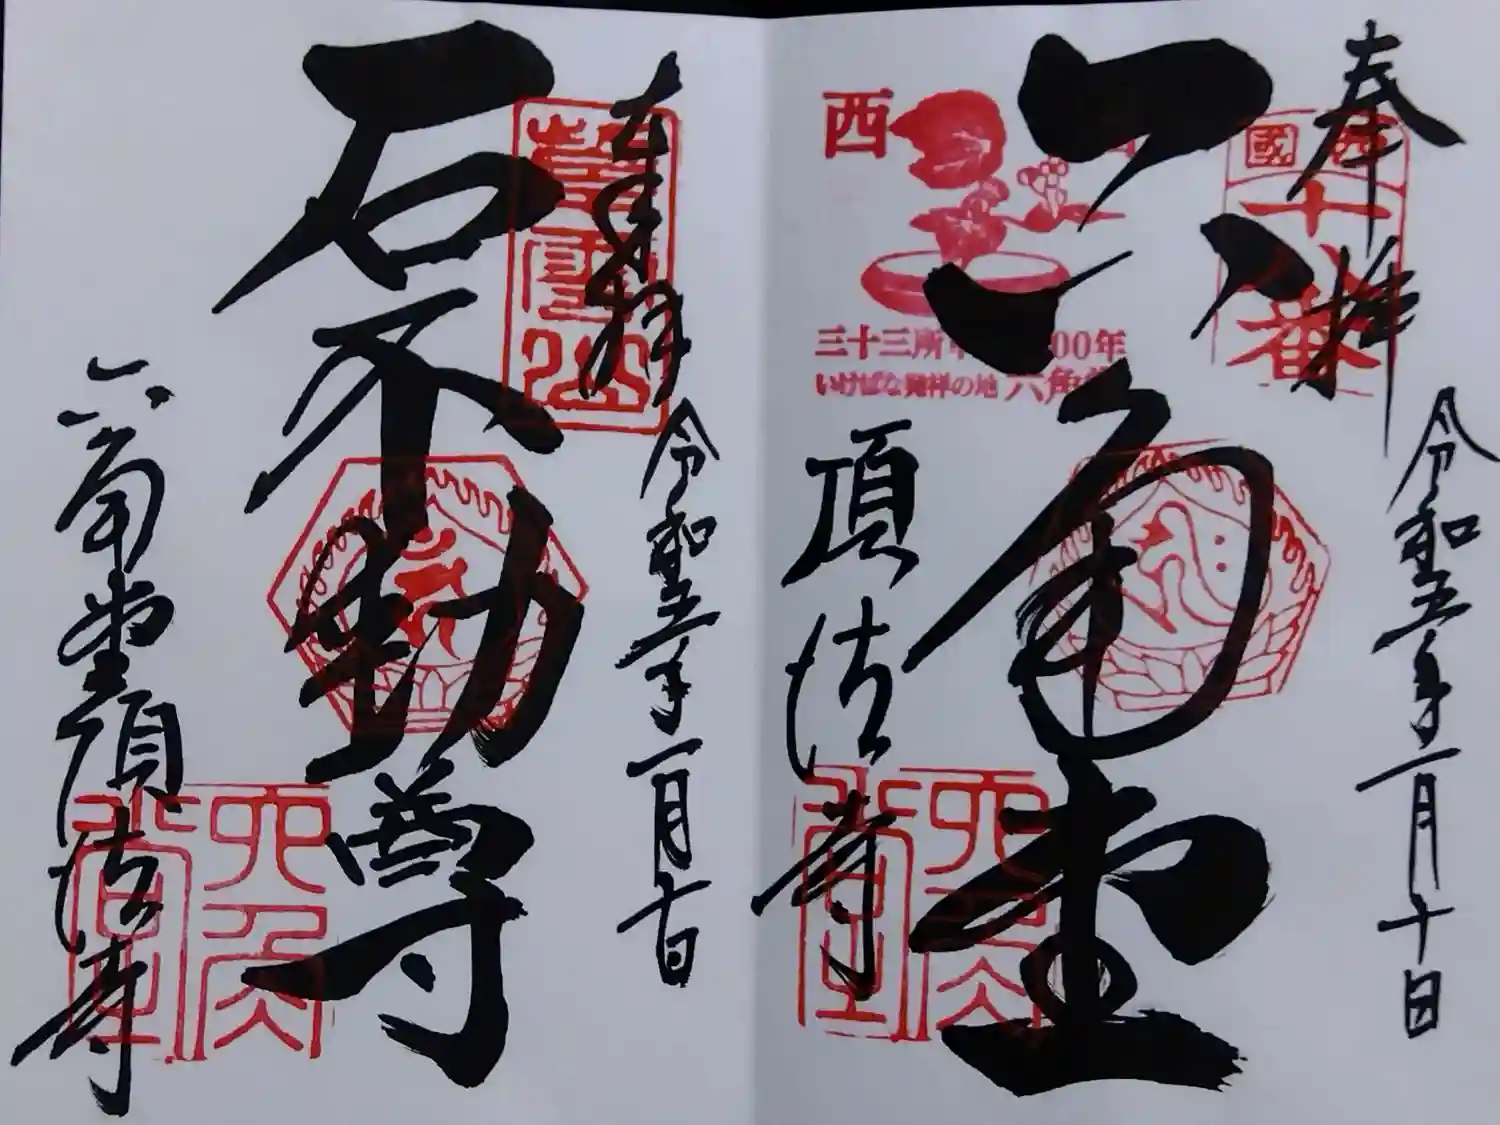 奉拝
令和五年一月十日
西國
十八番
六角堂
西
三十三所
00年
いけばな発祥の地 六角堂
頂法寺
六角堂
奉拝
令和五年一月十日
華雲山
石不動尊
六角堂頂法寺
六角堂